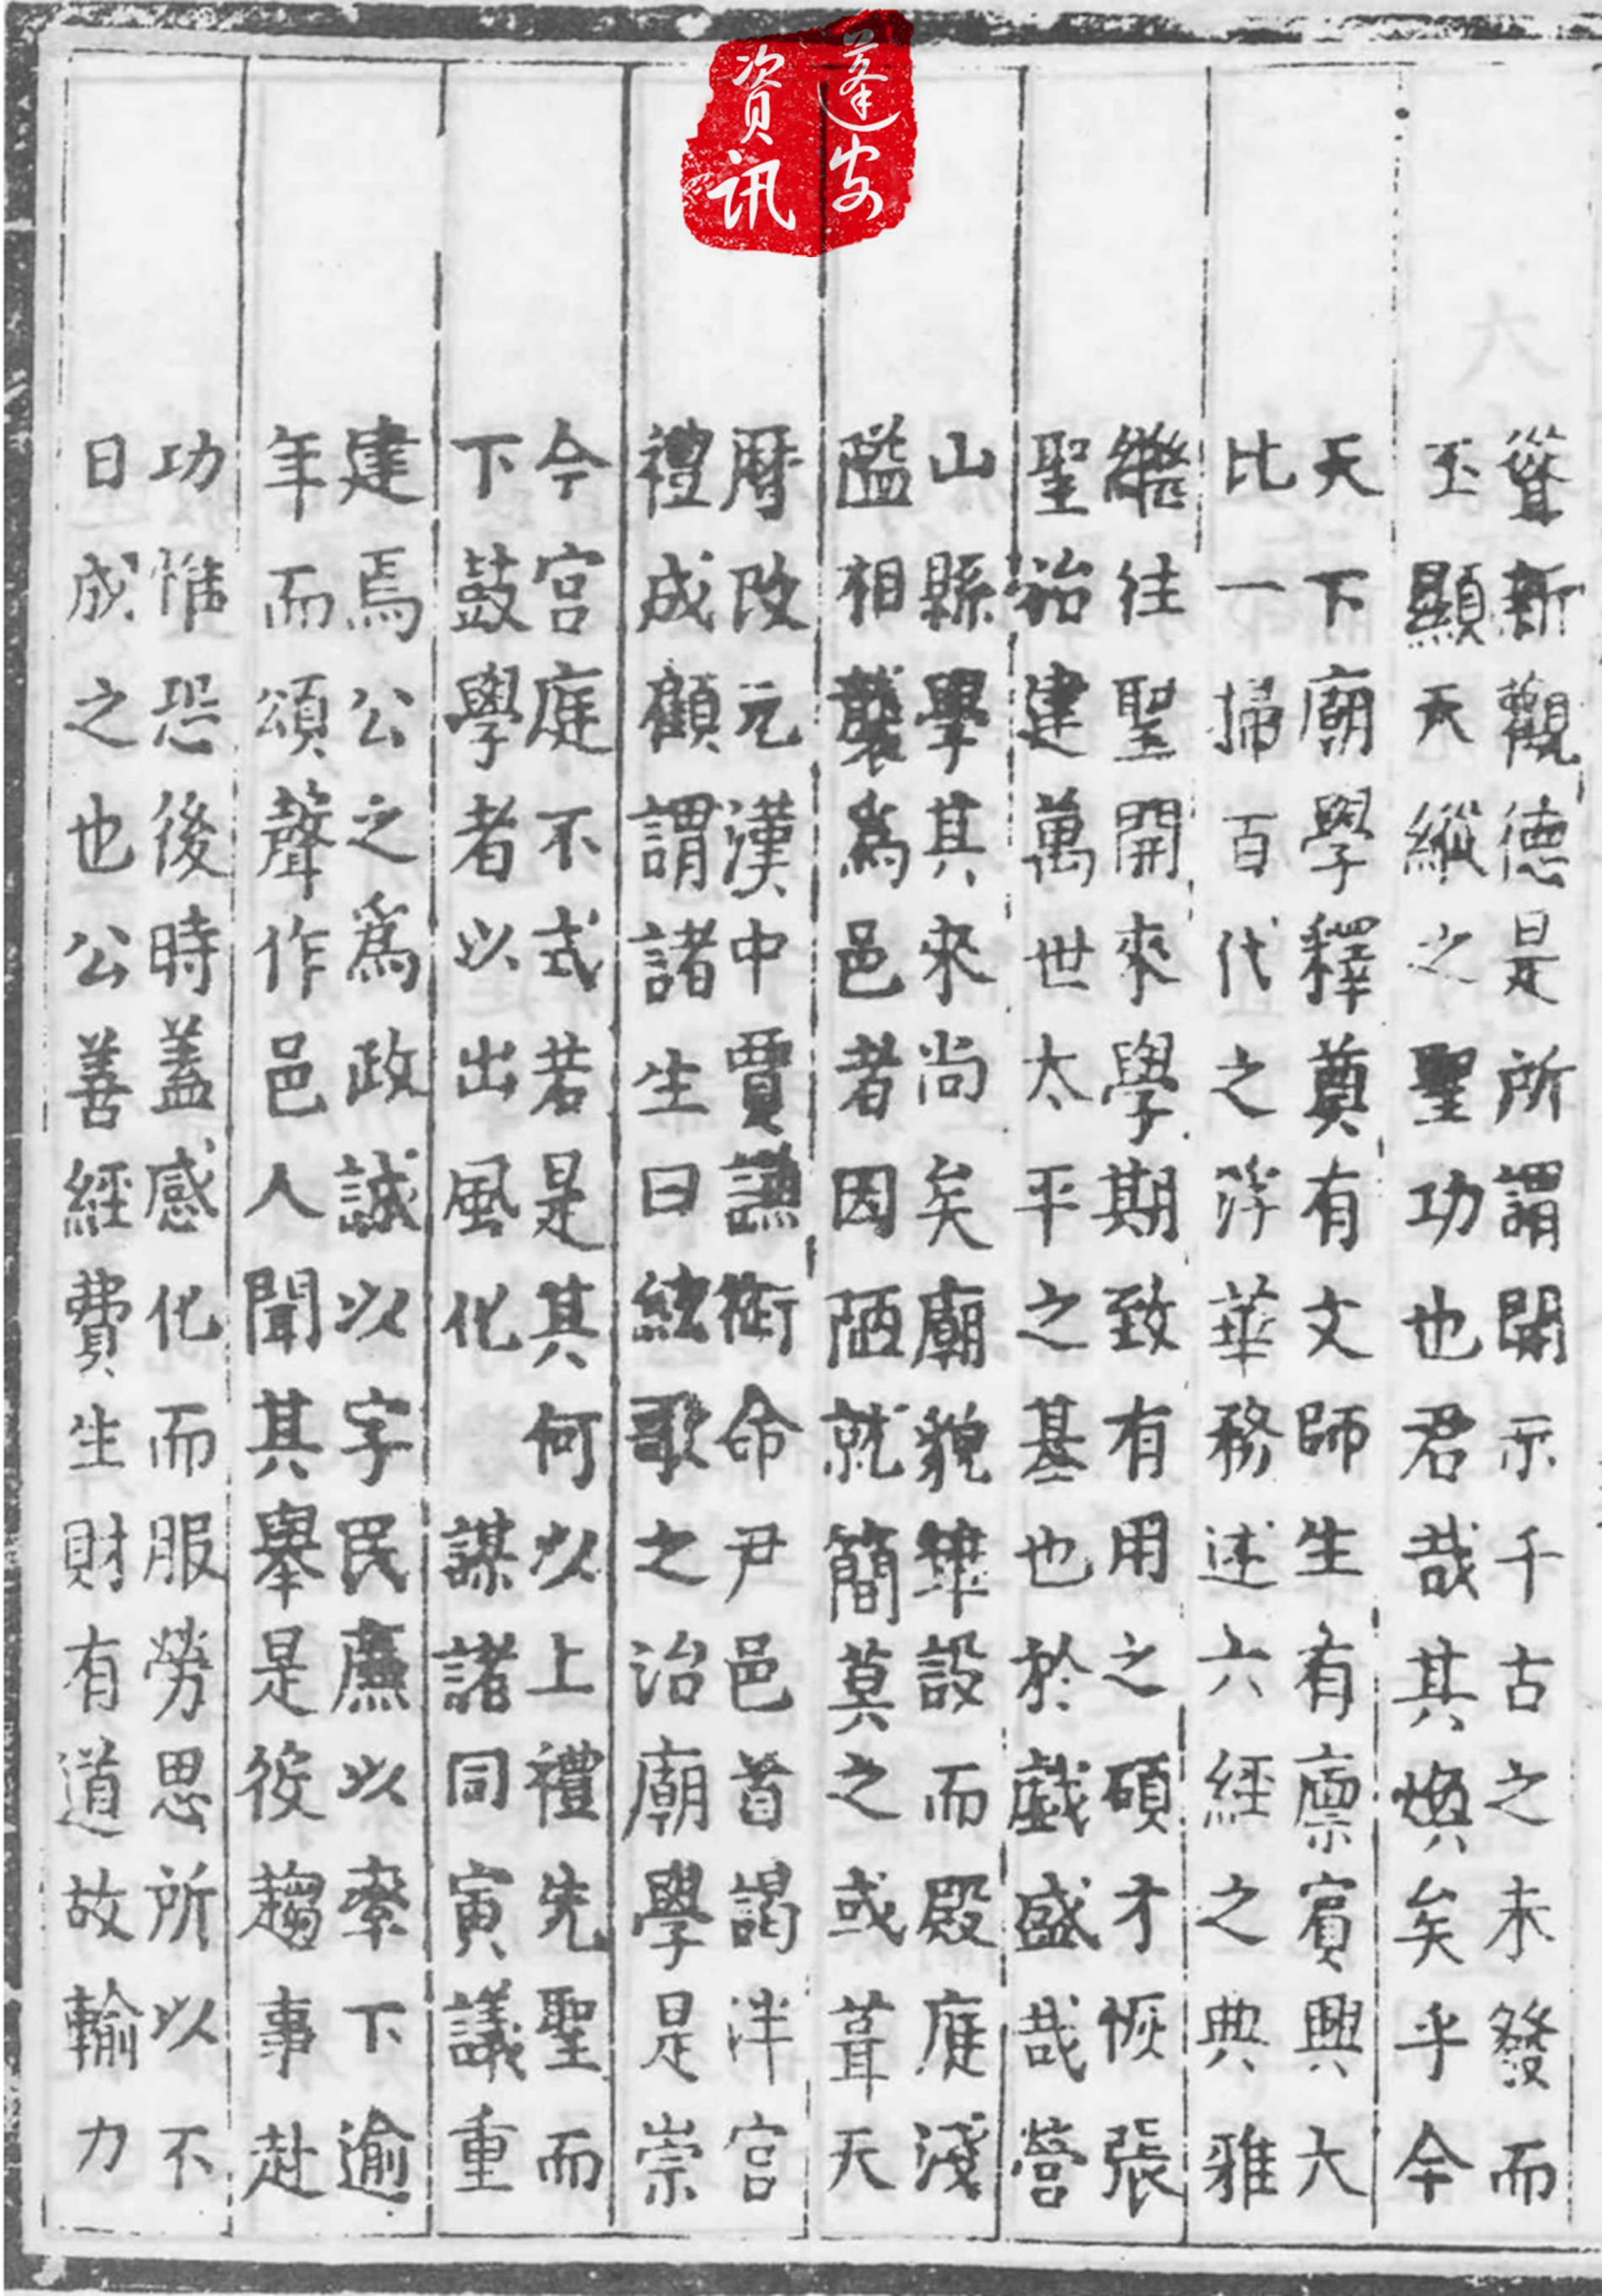 蓬安
资讯
聳新觀德是所謂開示千古之未發而
丕顯天縱之聖功也君哉其煥矣乎今
天下廟學釋奠有文師生有廩賓興大
比一掃百代之浮華務述六經之典雅
繼往聖開來學期致有用之碩才恢張
聖治建萬世太平之基也於戲盛哉營
山縣學其來尚矣廟貌雖設而殿庭淺
隘相襲爲邑者因陋就簡莫之或葺天
曆改元漢中賈謙銜命尹邑首謁泮宮
禮成顧謂諸生曰絃歌之治廟學是崇
今宮庭不式若是其何以上禮先聖而
下鼓學者以出風化 謀諸同寅議重
建焉公之爲政誠以字民廉以索下逾
年而頌聲作邑人聞其舉是役趨事赴
功惟恐後時蓋感化而服勞思所以不
日成之也公善經費生財有道故輸力